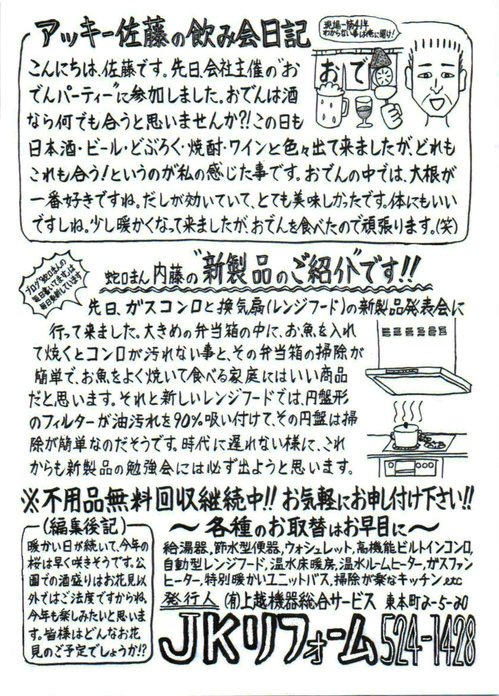 アッキー佐藤の飲み会日記
現場一筋41年
わからない事は俺に聞け!
おで
こんにちは、佐藤です。先日、会社主催の"お
でんパーティー"に参加しました。おでんは酒
なら何でも合うと思いませんか?!この日も
日本酒・ビール・どぶろく・焼酎・ワインと色々出て来ましたが、どれも
これも合う!というのが私の感じた事です。おでんの中では、大根が
一番好きですね。だしが効いていて、とても美味しかったです。体にもいい
ですしね。少し暖かくなって来ましたが、おでんを食べたので頑張ります。(笑)
ブログ"蛇口まんの
毎日書いてます"は
毎日更新しています
蛇口まん内藤の"新製品のご紹介"です!!
先日、ガスコンロと換気扇(レンジフード)の新製品発表会に
行って来ました。大きめの弁当箱の中に、お魚を入れ
て焼くとコンロが汚れない事と、その弁当箱の掃除が
簡単で、お魚をよく焼いて食べる家庭にはいい商品
だと思います。それと新しいレンジフードでは、円盤形
のフィルターが油汚れを90%吸い付けて、その円盤は掃
除が簡単なのだそうです。時代に遅れない様に、これ
からも新製品の勉強会には必ず出ようと思います。
※不用品無料回収継続中!!お気軽にお申し付け下さい!!
(編集後記)
暖かい日が続いて、今年の
桜は早く咲きそうです。公
園での酒盛りはお花見以
外ではご法度ですからね。
今年も楽しみたいと思いま
す。皆様はどんなお花
見のご予定でしょうか!?
〜各種のお取替はお早目に〜
給湯器、節水型便器、ウォシュレット、高機能ビルトインコンロ、
自動型レンジフード、温水床暖房、温水ルームヒーター、ガスファン
ヒーター、特別暖かいユニットバス、掃除が楽なキッチン、etc
発行人 (有)上越機器総合サービス 東本町2-5-20
JKリフォーム524-1428